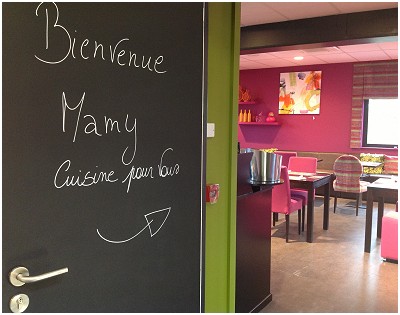 Bienvenue
Mamy
Cuisine pour Vous